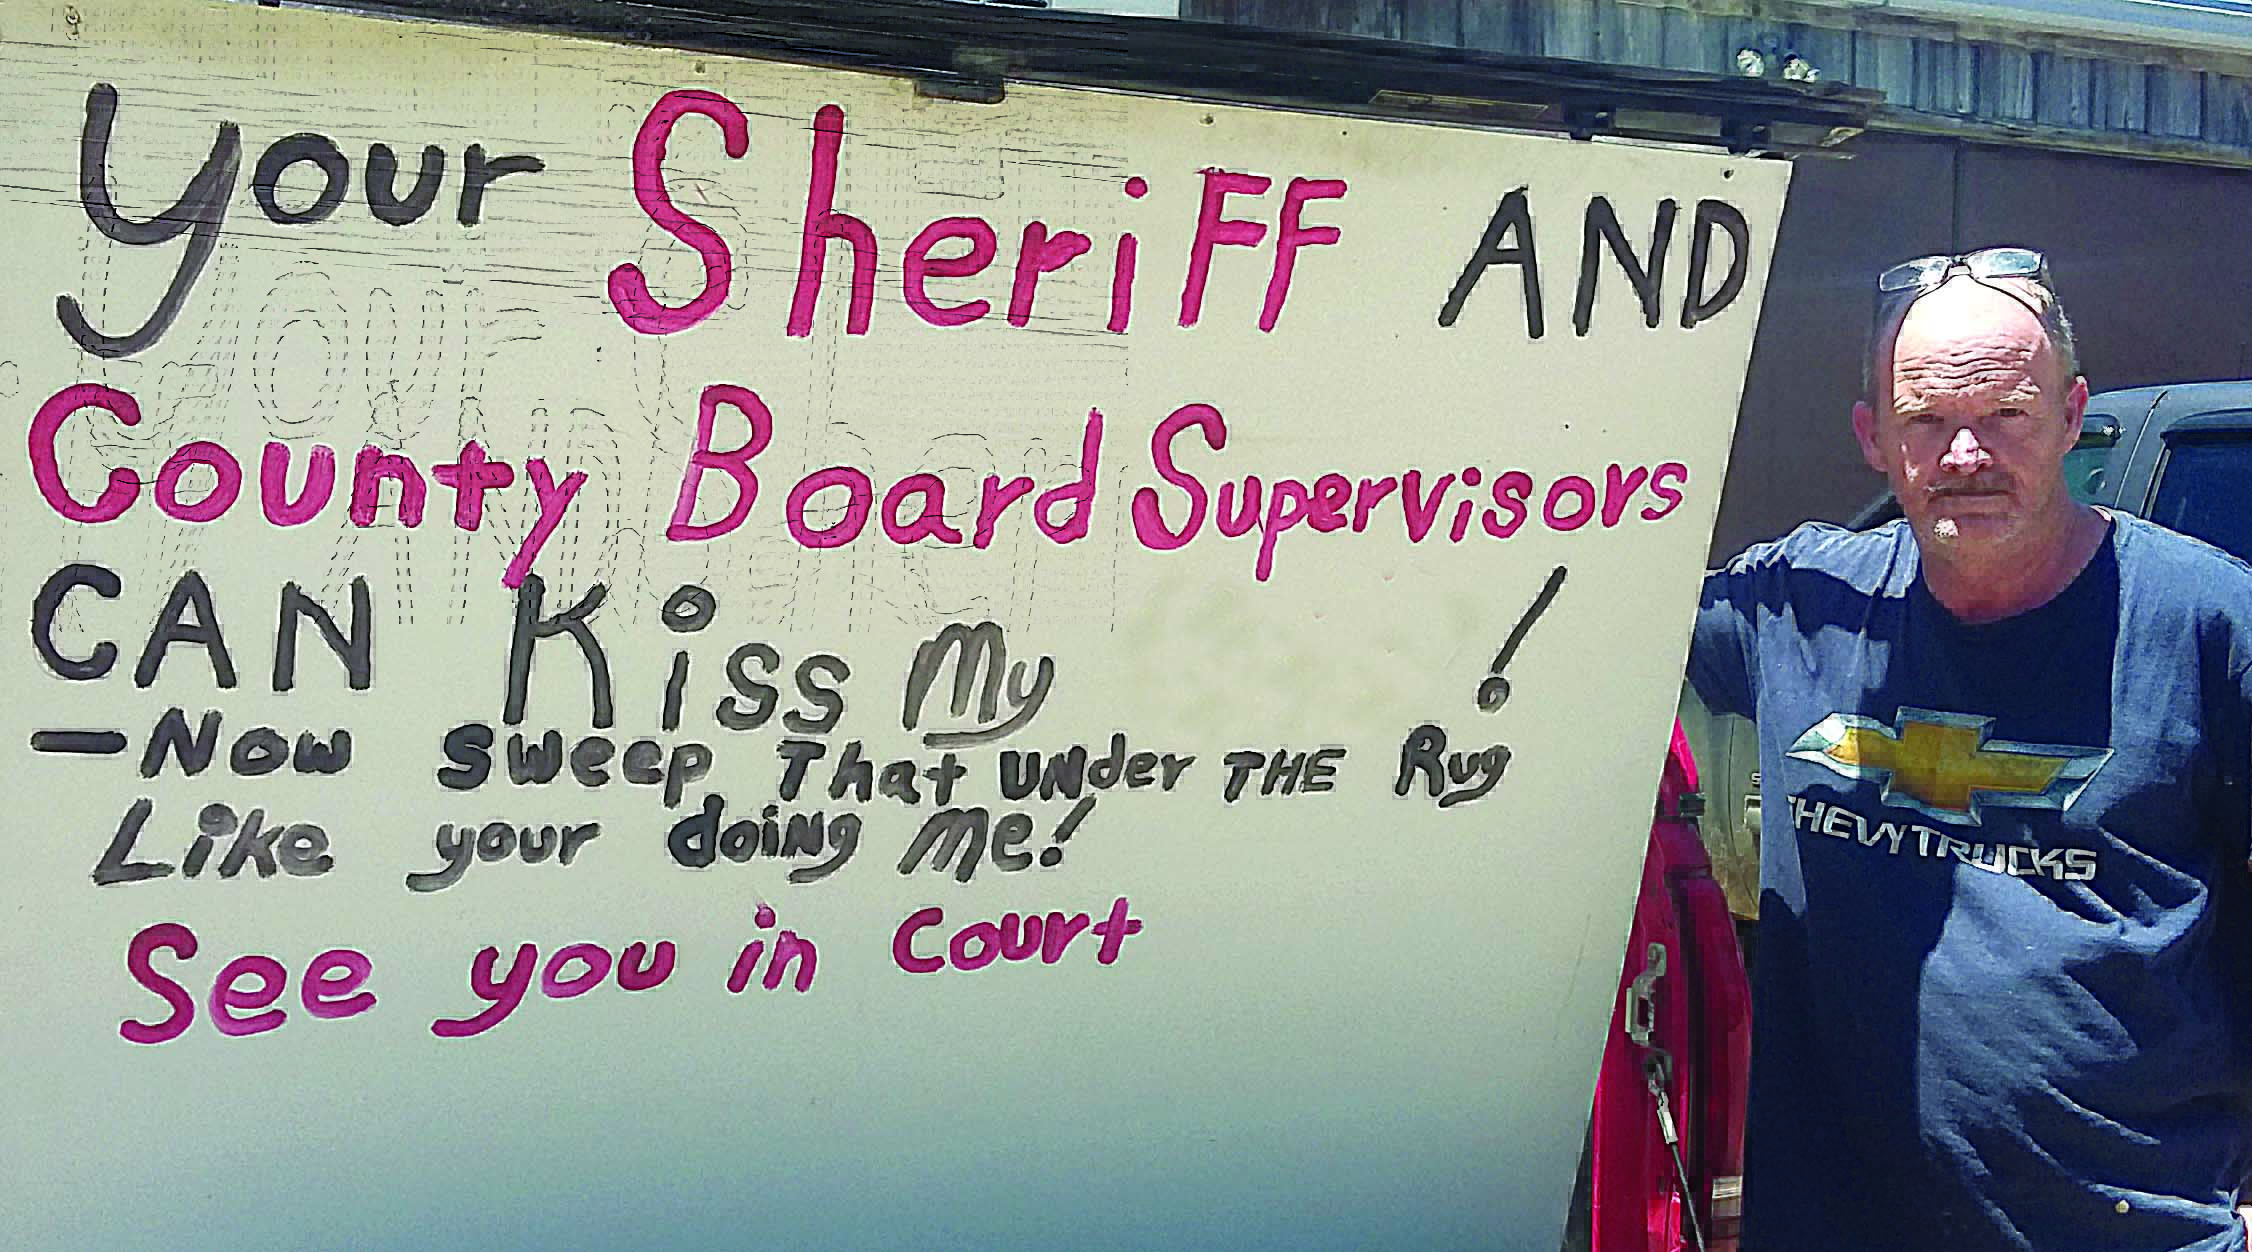 Your SheriFF AND
County Board Supervisors
CAN Kiss My !
- Now sweep That UNder THE Rug
Like your doiNg Me!
See you in Court
CHEVY TRUCKS